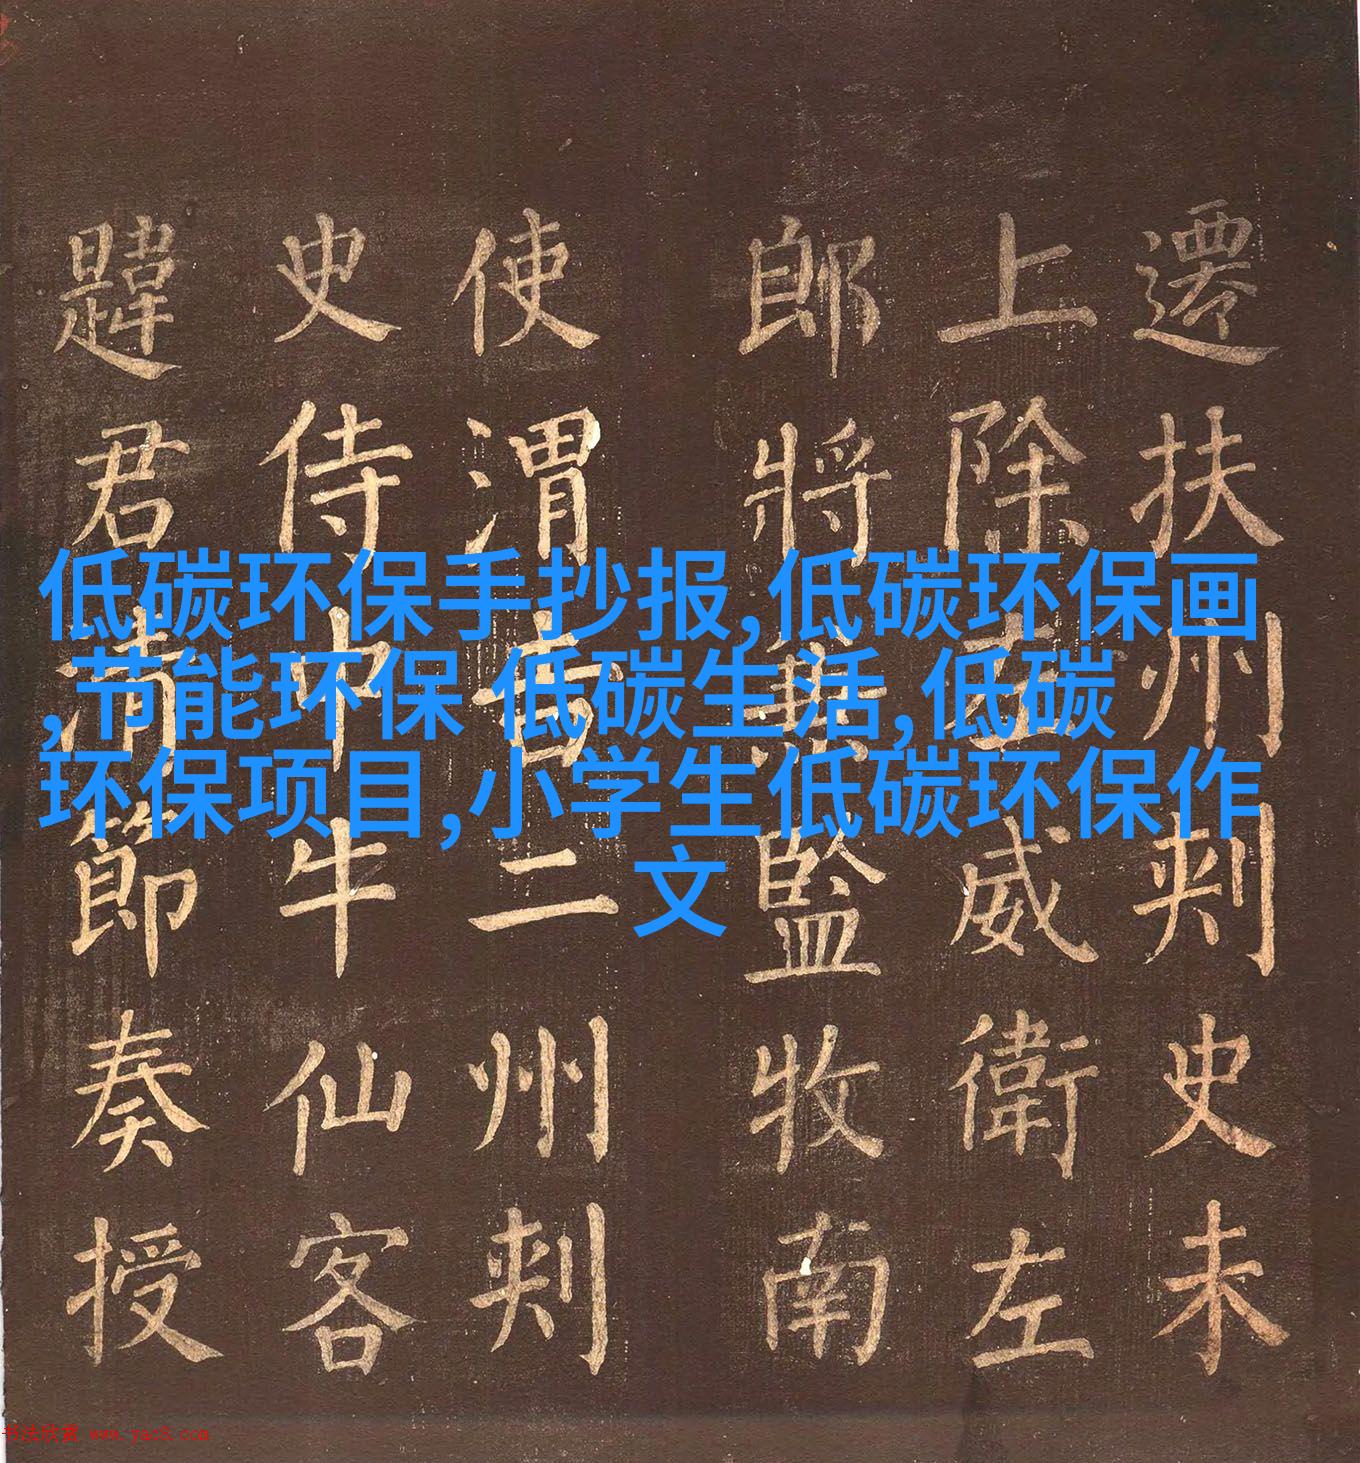 低碳环保手抄报,低碳环保画
,节能环保 低碳生活,低碳
环保项目,小学生低碳环保作
文
遷扶州刾史未
上除左威衛左
郎將兼監牧南
使渭吉二州刾
史侍中牛仙客
韙君清節奏授
书法欣赏 www.yac8.com